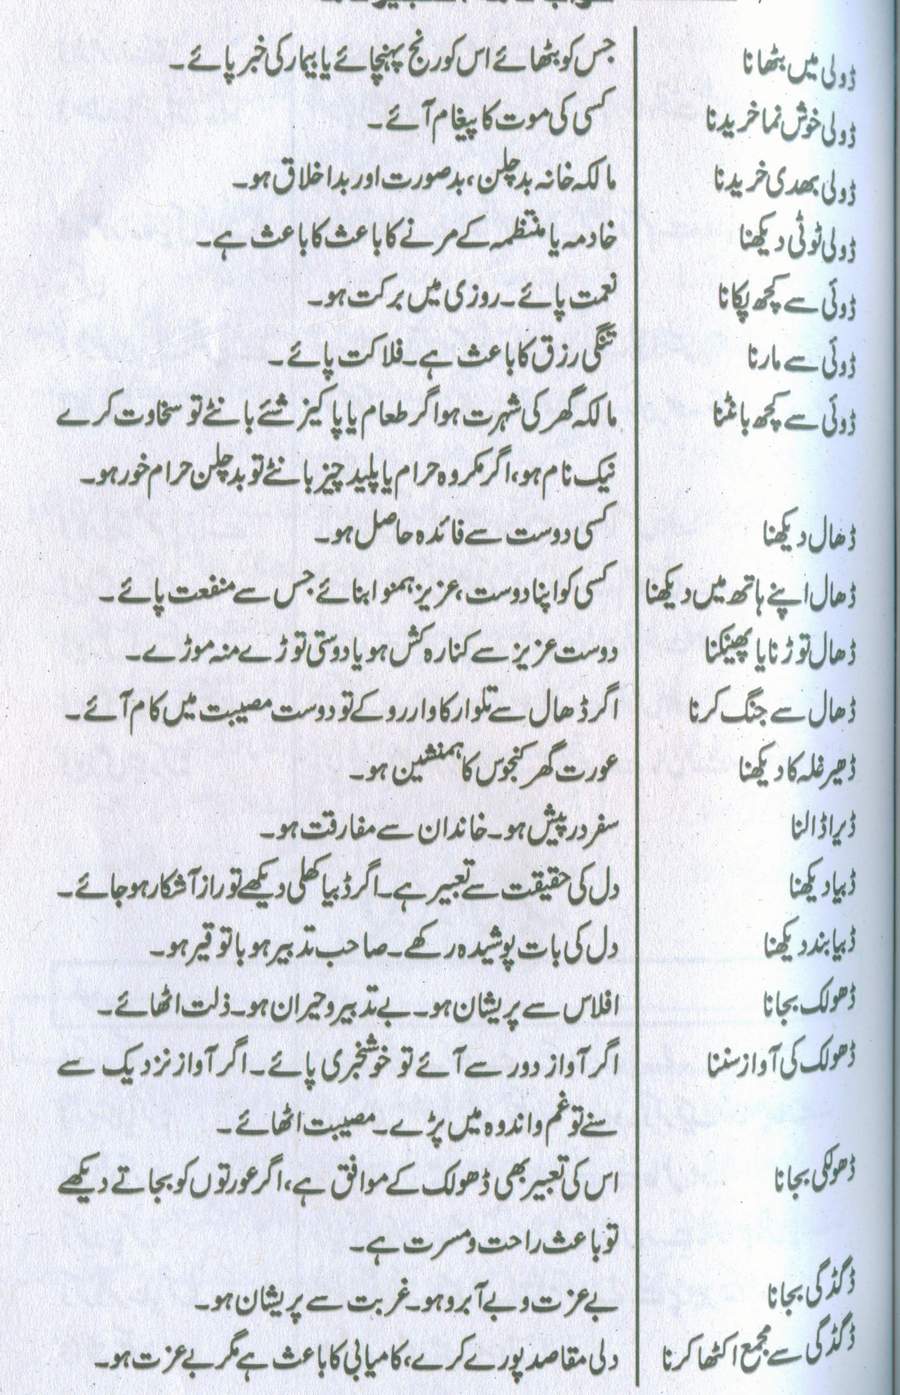 ڈولی میں بٹھانا جس کو بٹھائے اس کو رنج پہنچائے یا بیمار کی خبر پائے۔
ڈولی خوش نما خریدنا کسی کی موت کا پیغام آئے۔
ڈولی بھدی خریدنا مالکہ خانہ بدچلن، بدصورت اور بداخلاق ہو۔
ڈولی ٹوٹی دیکھنا خادمہ یا منتظمہ کے مرنے کا باعث کا باعث ہے۔
ڈوئی سے کچھ پکانا نعمت پائے۔ روزی میں برکت ہو۔
ڈوئی سے مارنا تنگی رزق کا باعث ہے۔ فلاکت پائے۔
ڈوئی سے کچھ بانٹنا مالکہ گھر کی شہرت ہو اگر طعام یا پاکیز شئے بانٹے تو سخاوت کرے
نیک نام ہو، اگر مکروہ حرام یا پلید چیز بانٹے تو بدچلن حرام خور ہو۔
ڈھال دیکھنا کسی دوست سے فائدہ حاصل ہو۔
ڈھال اپنے ہاتھ میں دیکھنا کسی کو اپنا دوست، عزیز ہمنوا بنائے جس سے منفعت پائے۔
ڈھال توڑنا یا پھینکنا دوست عزیز سے کنارہ کش ہو یا دوستی توڑے منہ موڑے۔
ڈھال سے جنگ کرنا اگر ڈھال سے تلوار کا وار روکے تو دوست مصیبت میں کام آئے۔
ڈھیر غلہ کا دیکھنا عورت گھر کنجوس کا ہمنشین ہو۔
ڈیرا ڈالنا سفر درپیش ہو۔ خاندان سے مفارقت ہو۔
ڈبیا دیکھنا دل کی حقیقت سے تعبیر ہے۔ اگر ڈبیا کھلی دیکھے تو راز آشکار ہو جائے۔
ڈبیا بند دیکھنا دل کی بات پوشیدہ رکھے۔ صاحب تدبیر ہو باتوقیر ہو۔
ڈھولک بجانا افلاس سے پریشان ہو۔ بے تدبیر و حیران ہو۔ ذلت اٹھائے۔
ڈھولک کی آواز سننا اگر آواز دور سے آئے تو خوشخبری پائے۔ اگر آواز نزدیک سے
سنے تو غم و اندوہ میں پڑے۔ مصیبت اٹھائے۔
ڈھولکی بجانا اس کی تعبیر بھی ڈھولک کے موافق ہے، اگر عورتوں کو بجاتے دیکھے
تو باعث راحت و مسرت ہے۔
ڈگڈگی بجانا بے عزت و بے آبرو ہو۔ غربت سے پریشان ہو۔
ڈگڈگی سے مجمع اکٹھا کرنا دلی مقاصد پورے کرے، کامیابی کا باعث ہے مگر بے عزت ہو۔